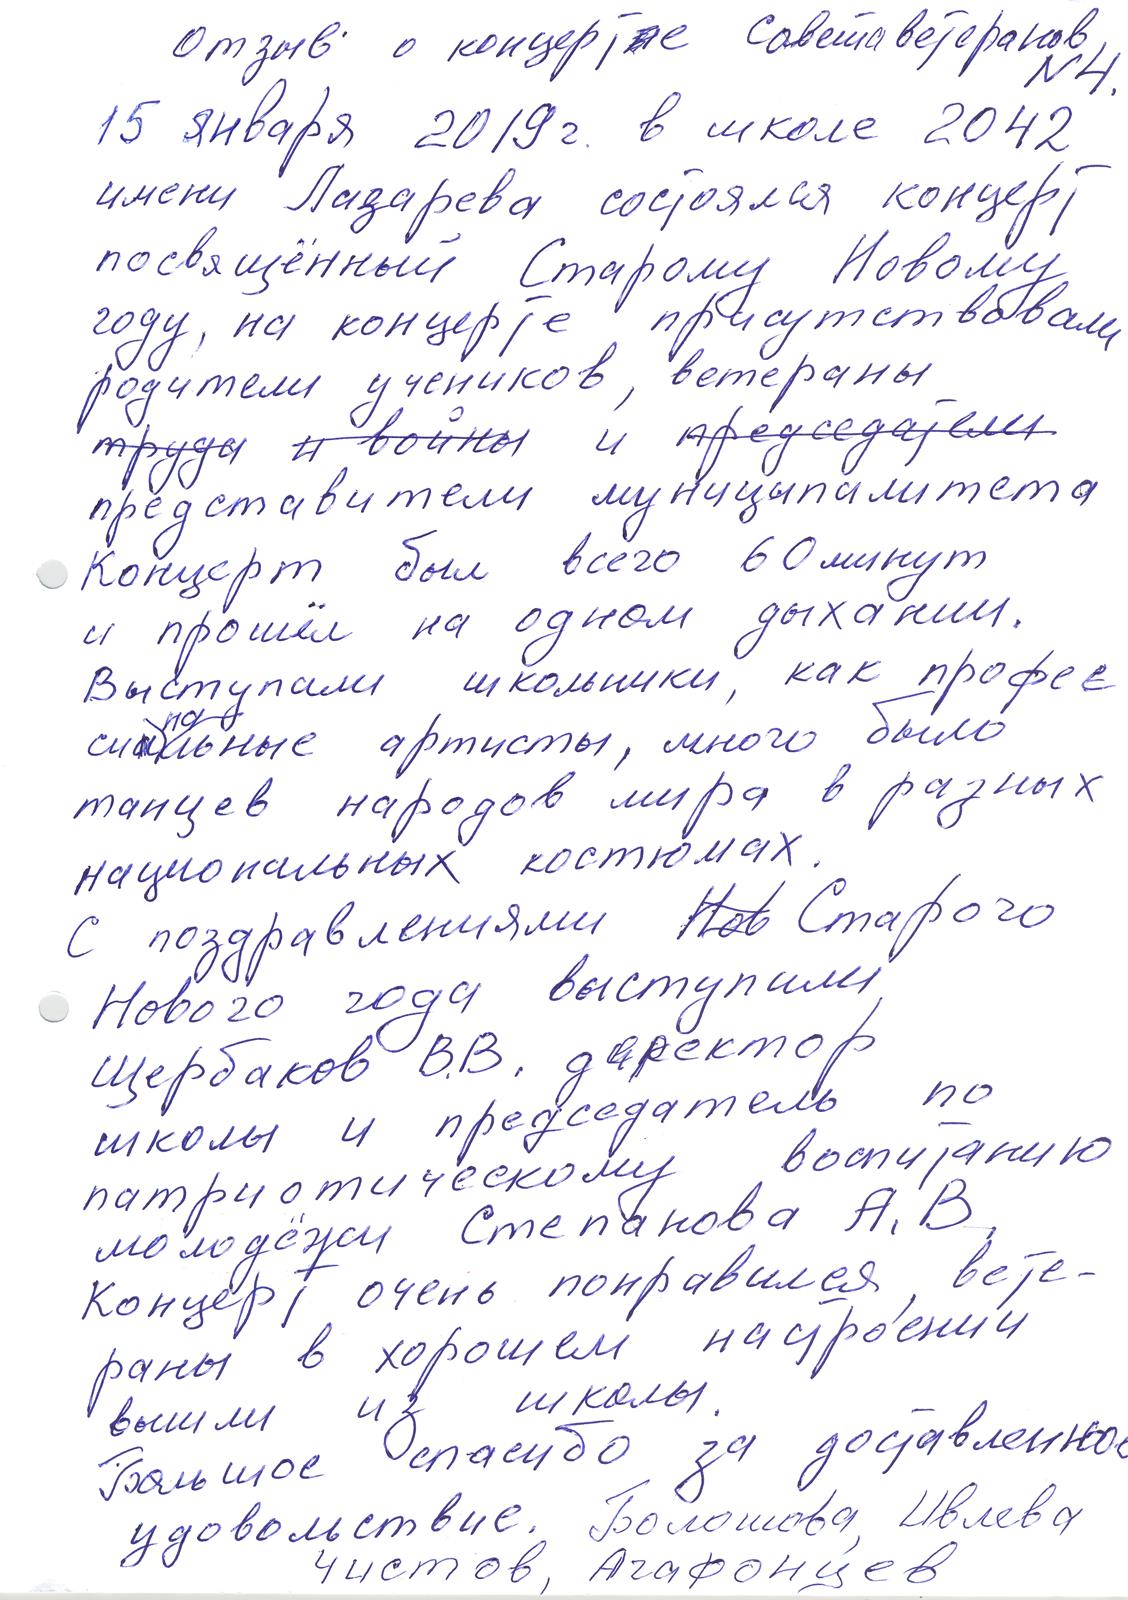 Отзыв о концерте Совета ветеранов
№4.
15 января 2019г. в школе 2042
имени Лазарева состоялся концерт
посвящённый Старому Новому
году, на концерте присутствовали
родители учеников, ветераны
труда и войны и председатели
представители муниципалитета
Концерт был всего 60 минут
и прошёл на одном дыхании.
Выступали школьники, как профес
сиональные артисты, много было
танцев народов мира в разных
национальных костюмах.
С поздравлениями Нов Старого
Нового года выступили
Щербаков В.В. директор
школы и председатель по
патриотическому воспитанию
молодёжи Степанова А.В.
Концерт очень понравился, вете-
раны в хорошем настроении
вышли из школы.
Большое спасибо за доставленное
удовольствие. Болошова, Ивлева
Чистов, Агафонцев